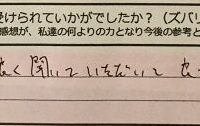 受けられていかがでしたか？（ズバリ
感想が、私達の何よりの力となり今後の参考と
良く聞いていただいて